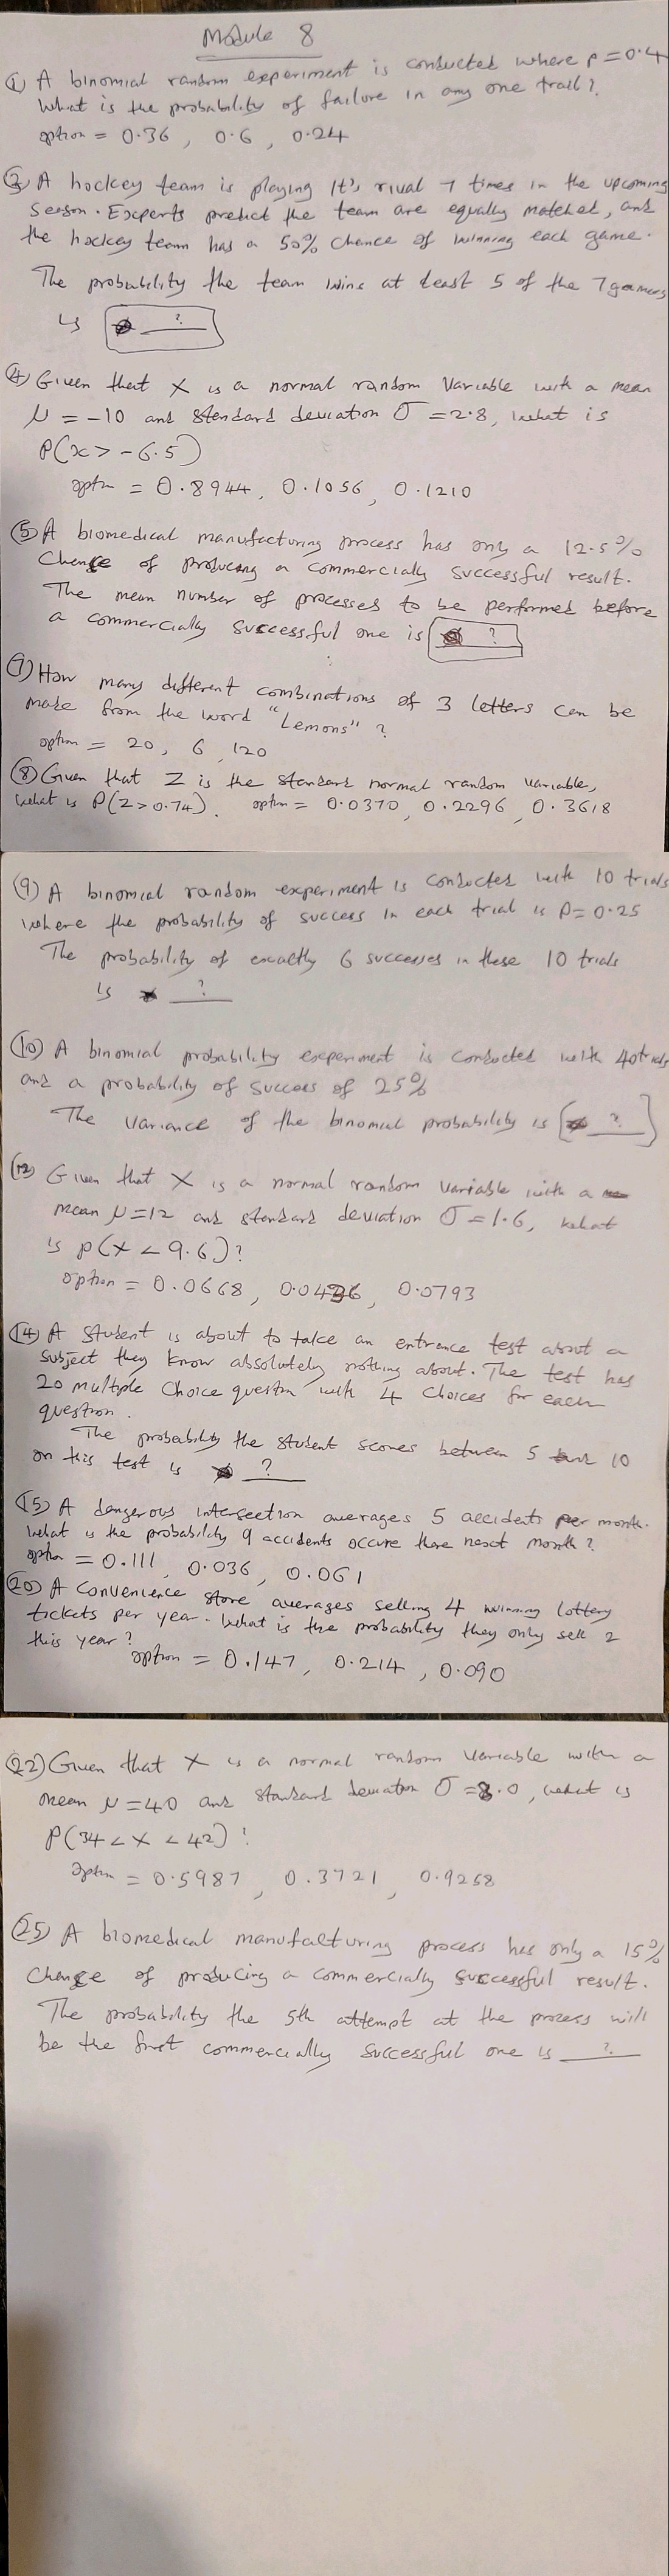 Module 8
① A binomial random experiment is conducted where p=0.4
What is the probability of failure in any one trail?
option = 0.36, 0.6, 0.24
③ A hockey team is playing It's rival 7 times in the upcoming
season. Experts predict the team are equally matched, and
the hockey team has a 50% chance of winning each game.
The probability the team wins at least 5 of the 7 games
is ?
④ Given that X is a normal random variable with a mean
μ = -10 and standard deviation σ = 2.8, what is
P(x > -6.5)
optn = 0.8944, 0.1056, 0.1210
⑤ A biomedical manufacturing process has only a 12.5%
Change of producing a commercially successful result.
The mean number of processes to be performed before
a commercially successful one is ?
⑦ How many different combinations of 3 letters can be
made from the word "Lemons"?
option = 20, 6, 120
⑧ Given that Z is the standard normal random variable,
what is P(Z>0.74). optin = 0.0370, 0.2296, 0.3618
⑨ A binomial random experiment is conducted with 10 trials
where the probability of success in each trial is P=0.25
The probability of exactly 6 successes in these 10 trials
is ?
⑩ A binomial probability experiment is conducted with 40trials
and a probability of success of 25%
The variance of the binomial probability is [ ? ]
⑫ Given that X is a normal random variable with a
mean μ=12 and standard deviation σ=1.6, what
is P(X < 9.6)?
option = 0.0668, 0.0436, 0.0793
⑭ A student is about to take an entrance test about a
subject they know absolutely nothing about. The test has
20 multiple choice question with 4 choices for each
question.
The probability the student scores between 5 and 10
on this test is ?
⑮ A dangerous intersection averages 5 accidents per month.
What is the probability 9 accidents occure there next month?
option = 0.111, 0.036, 0.061
⑳ A convenience store averages selling 4 winning lottery
tickets per year. What is the probability they only sell 2
this year?
option = 0.147, 0.214, 0.090
㉒ Given that X is a normal random variable with a
mean μ=40 and standard deviation σ=8.0, what is
P(34 < X < 42)?
optin = 0.5987, 0.3721, 0.9258
㉕ A biomedical manufacturing process has only a 15%
change of producing a commercially successful result.
The probability the 5th attempt at the process will
be the first commercially successful one is ?